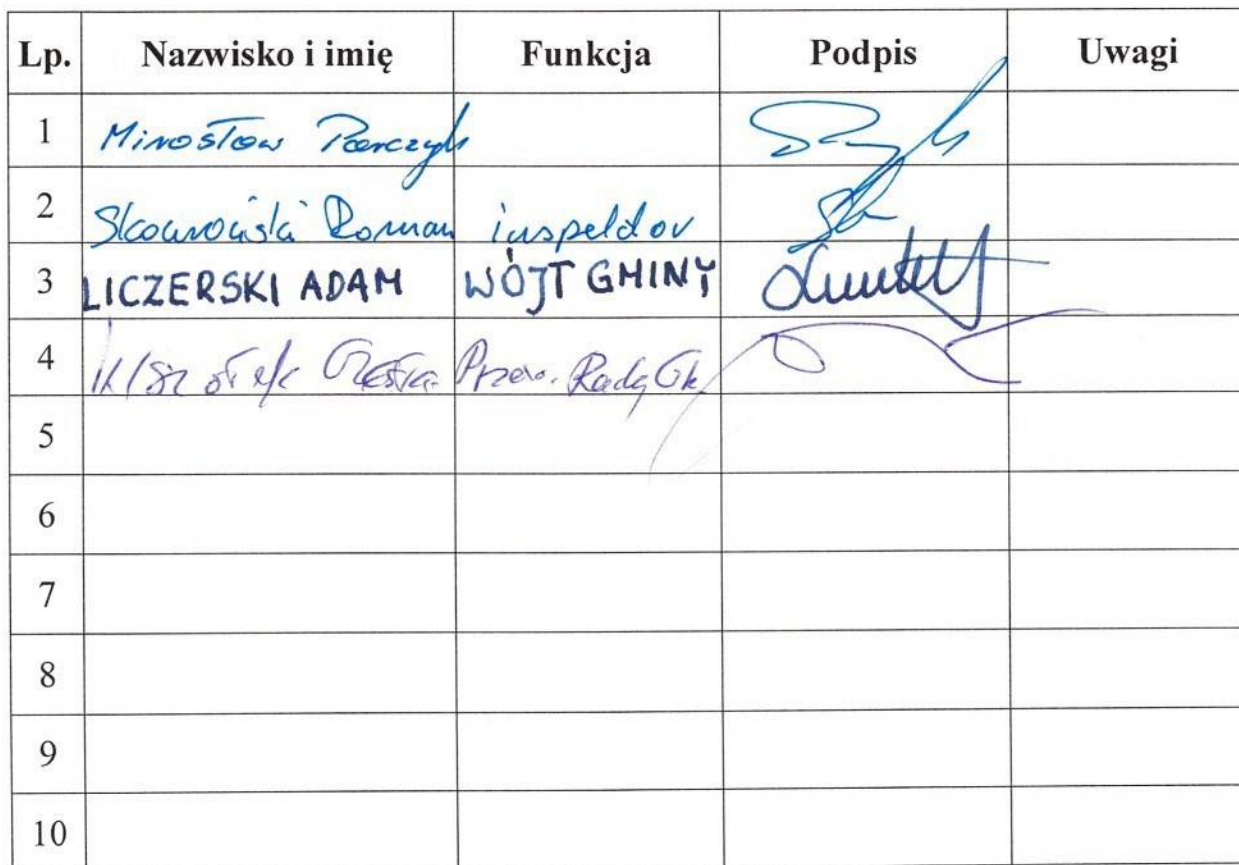 Lp. Nazwisko i imię Funkcja Podpis Uwagi
1 Mirosław Parczyk
2 Skowroński Roman inspektor
3 LICZERSKI ADAM WÓJT GMINY
4 Przew. Rady Gm
5
6
7
8
9
10